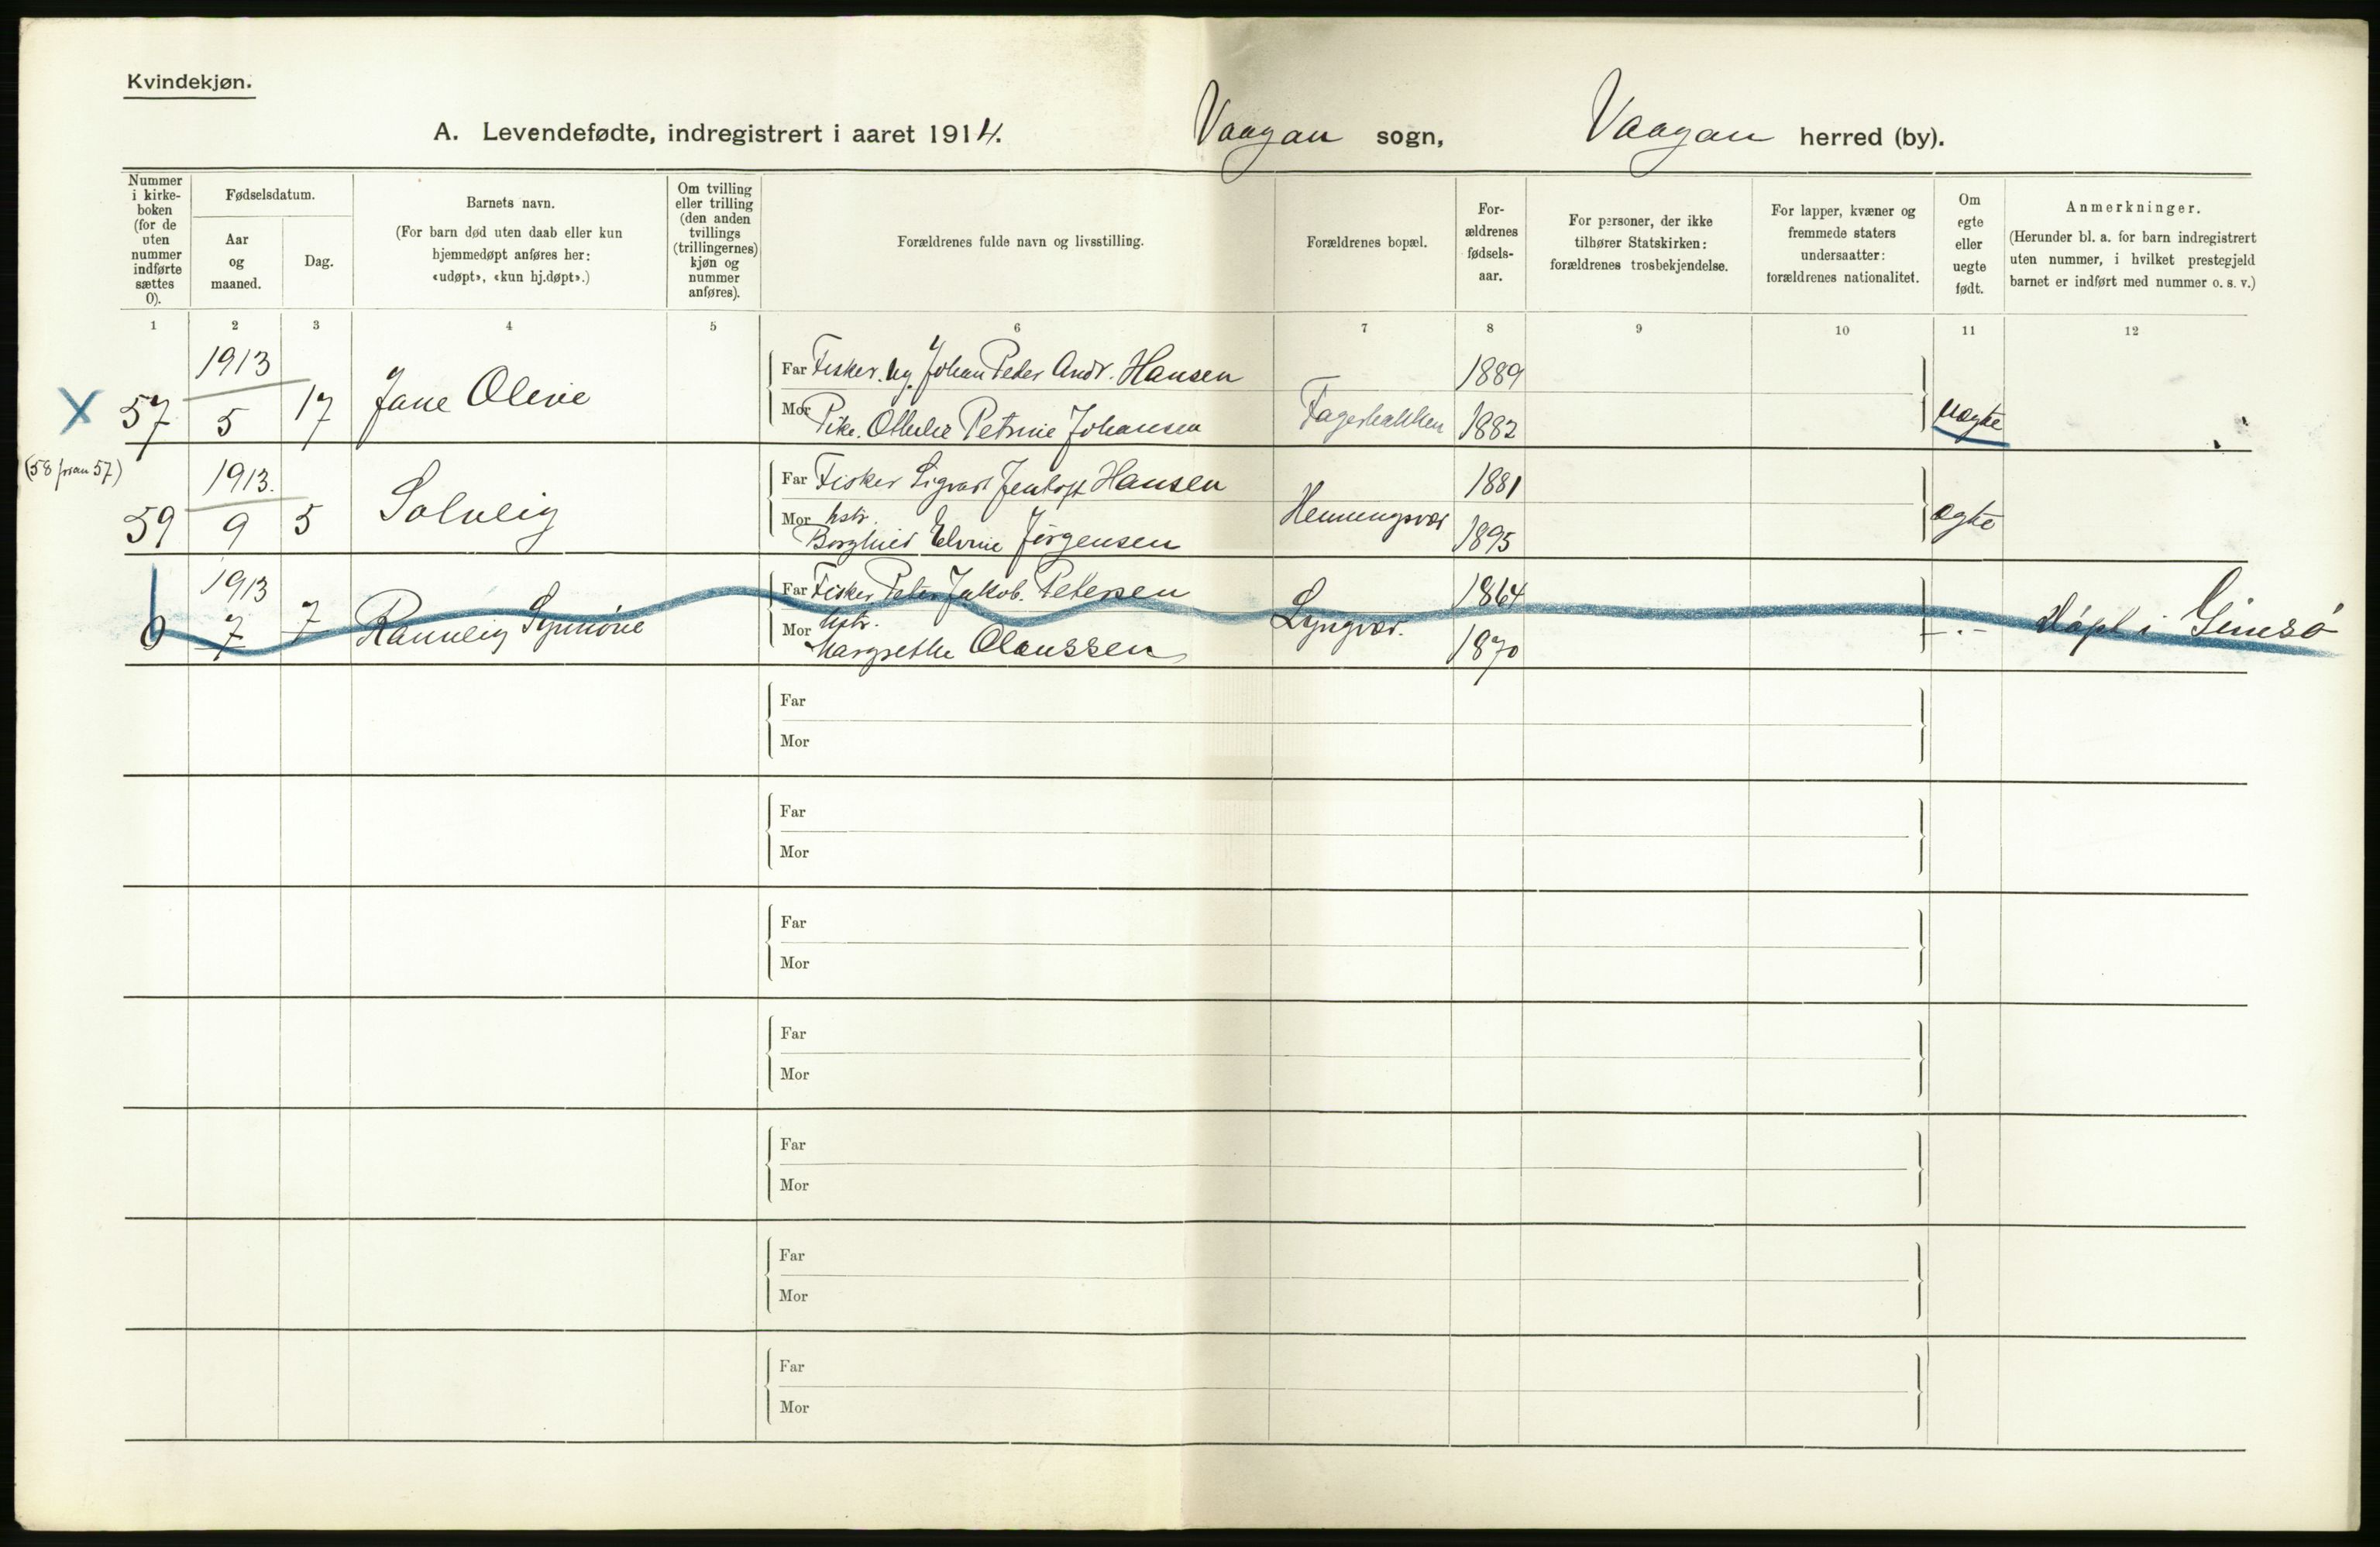 Kvindekjøn.
A. Levendefødte, indregistrert i aaret 1914. Vaagan sogn, Vaagan herred (by).
Nummer i kirke-boken (for de uten nummer indførte sættes 0).
Fødselsdatum.
Aar og maaned.
Dag.
Barnets navn.
(For barn død uten daab eller kun hjemmedøpt anføres her: «udøpt», «kun hj.døpt».)
Om tvilling eller trilling (den anden tvillings (trillingernes) kjøn og nummer anføres).
Forældrenes fulde navn og livsstilling.
Forældrenes bopæl.
For-ældrenes fødsels-aar.
For personer, der ikke tilhører Statskirken: forældrenes trosbekjendelse.
For lapper, kvæner og fremmede staters undersaatter: forældrenes nationalitet.
Om egte eller uegte født.
Anmerkninger.
(Herunder bl. a. for barn indregistrert uten nummer, i hvilket prestegjeld barnet er indført med nummer o. s. v.)
1 2 3 4 5 6 7 8 9 10 11 12
X 57 1913 5 17 Jane Olivie
Far Fisker. Ug. Johan Peder Andr. Hansen 1889
Mor Pike. Otthilie Petrine Johansen Fagerbakken 1882 uegte
(58 foran 57)
59 1913. 9 5 Solveig
Far Fisker Sigvart Jentoft Hansen 1881
Mor hstr. Borghild Elvine Jørgensen Henningsvær 1895 egte
0 1913 7 7 Rannveig Synnøve
Far Fisker Peter Jakob. Petersen 1864
Mor hstr. Margrethe Olaussen Lyngvær. 1870 -.- Døpt i Gimsö
Far
Mor
Far
Mor
Far
Mor
Far
Mor
Far
Mor
Far
Mor
Far
Mor